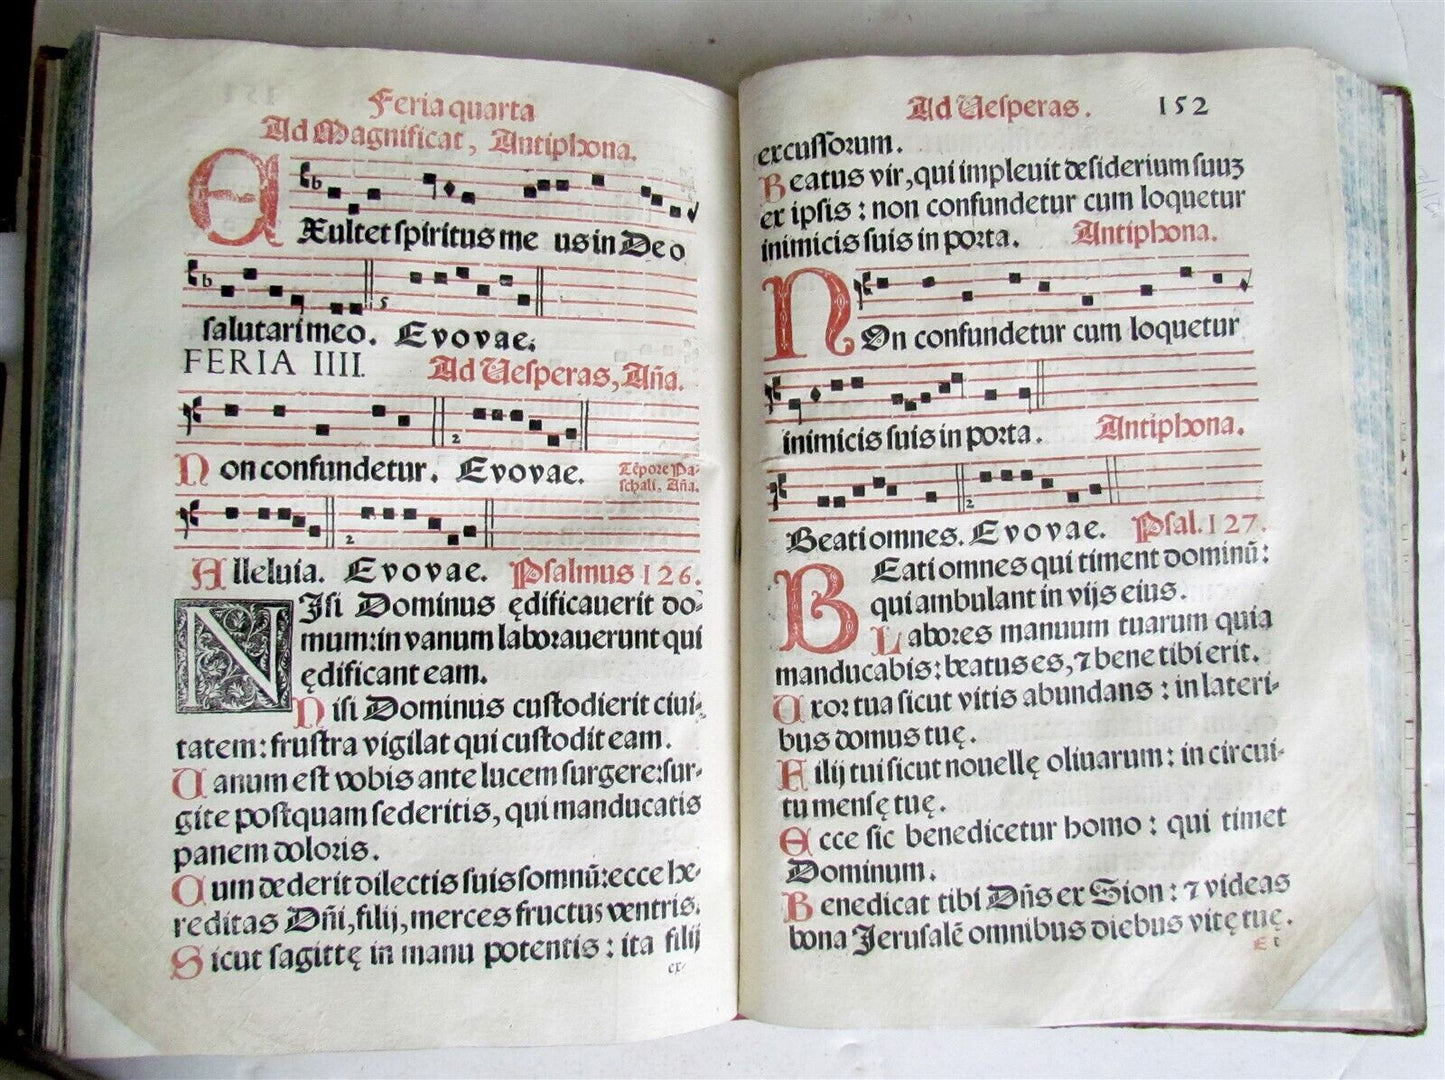 Feria quarta
Ad Magnificat, Antiphona.
EXultet spiritus me us in Deo
salutari meo. Evovae.
FERIA IIII. Ad Vesperas, Aña.
Non confundetur. Evovae. Tẽpore Pa-
schali, Aña.
Alleluia. Evovae. Psalmus 126.
NIsi Dominus ędificauerit do-
mum: in vanum laborauerunt qui
ędificant eam.
Nisi Dominus custodierit ciui-
tatem: frustra vigilat qui custodit eam.
Vanum est vobis ante lucem surgere: sur-
gite postquam sederitis, qui manducatis
panem doloris.
Cum dederit dilectis suis somnũ: ecce he-
reditas Dñi, filij, merces fructus ventris.
Sicut sagittę in manu potentis: ita filij
ex-
Ad Vesperas. 152
excussorum.
Beatus vir, qui impleuit desiderium suuʒ
ex ipsis: non confundetur cum loquetur
inimicis suis in porta. Antiphona.
NOn confundetur cum loquetur
inimicis suis in porta. Antiphona.
Beati omnes. Evovae. Psal. 127.
BEati omnes qui timent dominũ:
qui ambulant in vijs eius.
Labores manuum tuarum quia
manducabis: beatus es, ⁊ bene tibi erit.
Uxor tua sicut vitis abundans: in lateri-
bus domus tuę.
Filij tui sicut nouellę oliuarum: in circui-
tu mensę tuę.
Ecce sic benedicetur homo: qui timet
Dominum.
Benedicat tibi Dñs ex Sion: ⁊ videas
bona Jerusalẽ omnibus diebus vitę tuę.
Et